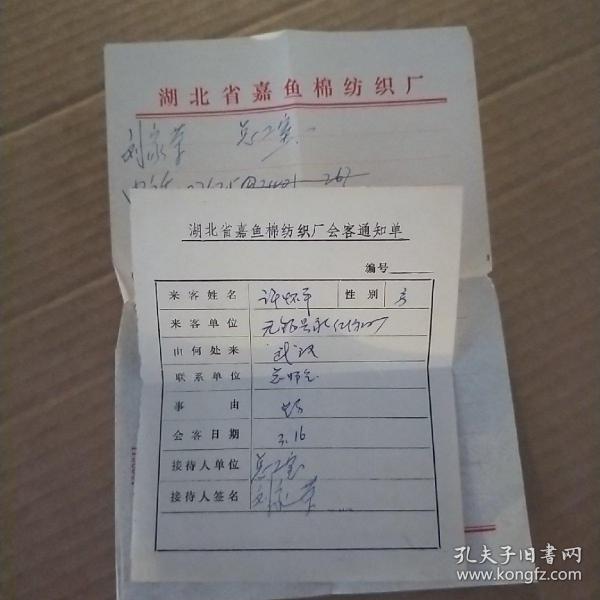 湖北省嘉鱼棉纺织厂
刘家荣 总工室
湖北省嘉鱼棉纺织厂会客通知单
编号
来客姓名 许怀平 性别 男
来客单位
由何处来 武汉
联系单位
事由
会客日期 3.16
接待人单位 总工室
接待人签名 刘家荣
孔夫子旧书网
www.kongfz.com